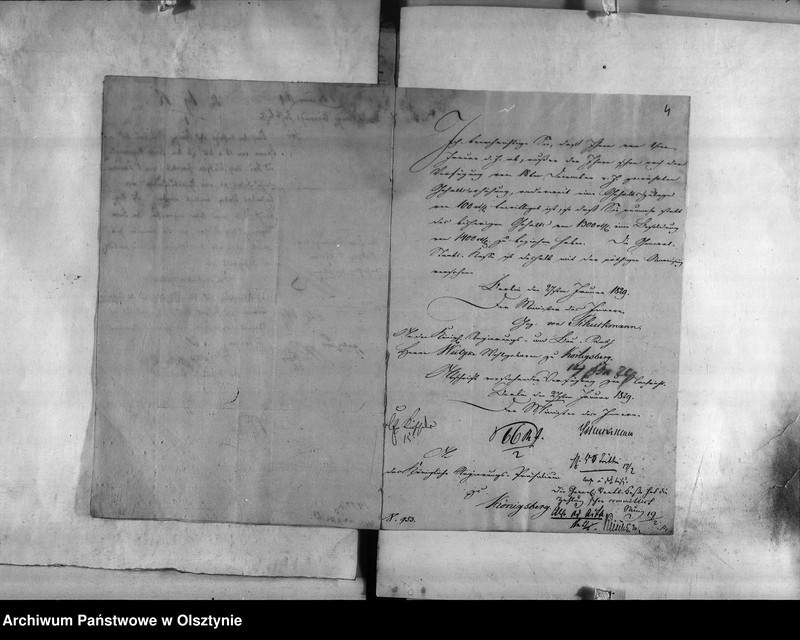 4
Ich benachrichtige Sie, daß Ihnen vom 1ten
Januar d. J. ab, außer der Ihnen schon nach der
Verfügung vom 18ten December v. J. gewährten
Gehaltserhöhung, anderweit eine Gehaltszulage
von 100 rt. bewilligt ist, so daß Sie nunmehr statt
des bisherigen Gehalts von 1300 rt. eine Besoldung
von 1400 rt. zu beziehen haben. Die General-
Staats-Kasse ist deshalb mit der nöthigen Anweisung
versehen.
Berlin den 27ten Januar 1829.
Der Minister des Innern.
Gez. von Schuckmann.
An den Königl. Regierungs- und Bau-Rath
Herrn Wutzke Wohlgeboren zu Königsberg.
Abschrift vorstehender Verfügung zur Nachricht.
Berlin den 27ten Januar 1829.
Der Minister des Innern.
Schuckmann
An
das Königliche Regierungs-Präsidium
zu
Königsberg
N. 953.
Archiwum Państwowe w Olsztynie